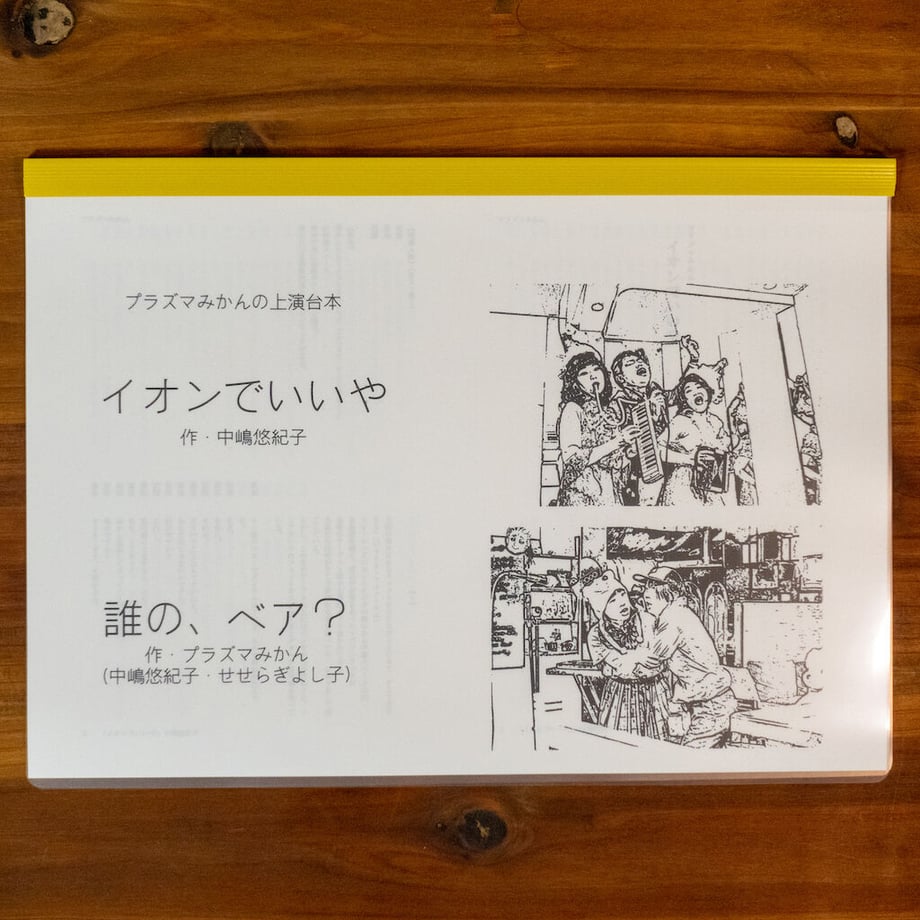 プラズマみかんの上演台本
イオンでいいや
作・中嶋悠紀子
誰の、ベア?
作・プラズマみかん
(中嶋悠紀子・せせらぎよし子)